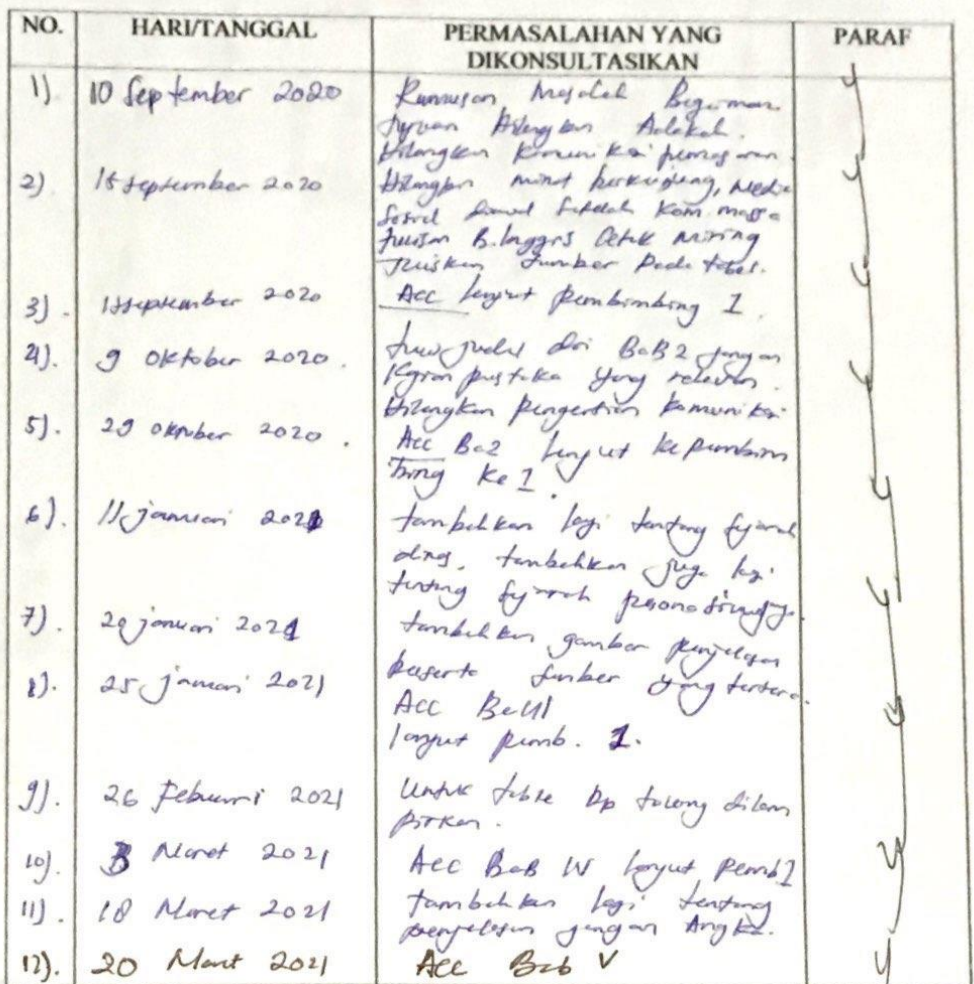 NO. HARI/TANGGAL PERMASALAHAN YANG DIKONSULTASIKAN PARAF
1). 10 September 2020 Rumusan Masalah Bagaimana
Tujuan Hilangkan Adakah.
Hilangkan Komunikasi pemasaran
2) 15 September 2020 Hilangkan minat berkunjung, Media
Sosial setelah Kom. massa
Tulisan B. Inggris Cetak miring
Tuliskan Sumber Pada tabel.
3). September 2020 Acc lanjut Pembimbing 1.
4). 9 Oktober 2020. judul dri BAB 2 jangan
Kajian pustaka yang relevan.
Hilangkan Pengertian Komunikasi
5). 29 Oktober 2020. Acc Ba2 lanjut ke pembim
bing Ke 1.
6). 11 januari 2021 tambahkan lagi tentang sejarah
dinas, tambahkan juga lagi
tentang sejarah pesona
7). 20 januari 2021 tambahkan gambar penjelasan
beserta sumber yang tertera.
8). 25 januari 2021 Acc Bab III
lanjut pemb. 1.
9). 26 Februari 2021 Untuk tolong dilam
pirkan.
10). 3 Maret 2021 Acc BAB IV lanjut Pemb 1
11). 18 Maret 2021 tambahkan lagi tentang
penjelasan jangan Angka.
12). 20 Maret 2021 Acc Bab V